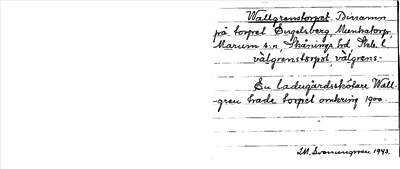 Wallgrenstorpet. Binamn
på torpet Engelsberg, Munkatorp,
Marum s:n, Skånings hd, Skbl. l.
välgrenstorpet, välgrens-
En ladugårdsskötare Wall-
-gren hade torpet omkring 1900.
IM. Svenungsson 1943.